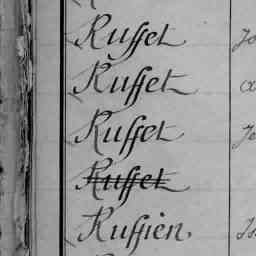 Rufset
Rufset
Rufset
Rufset
Rufsien.